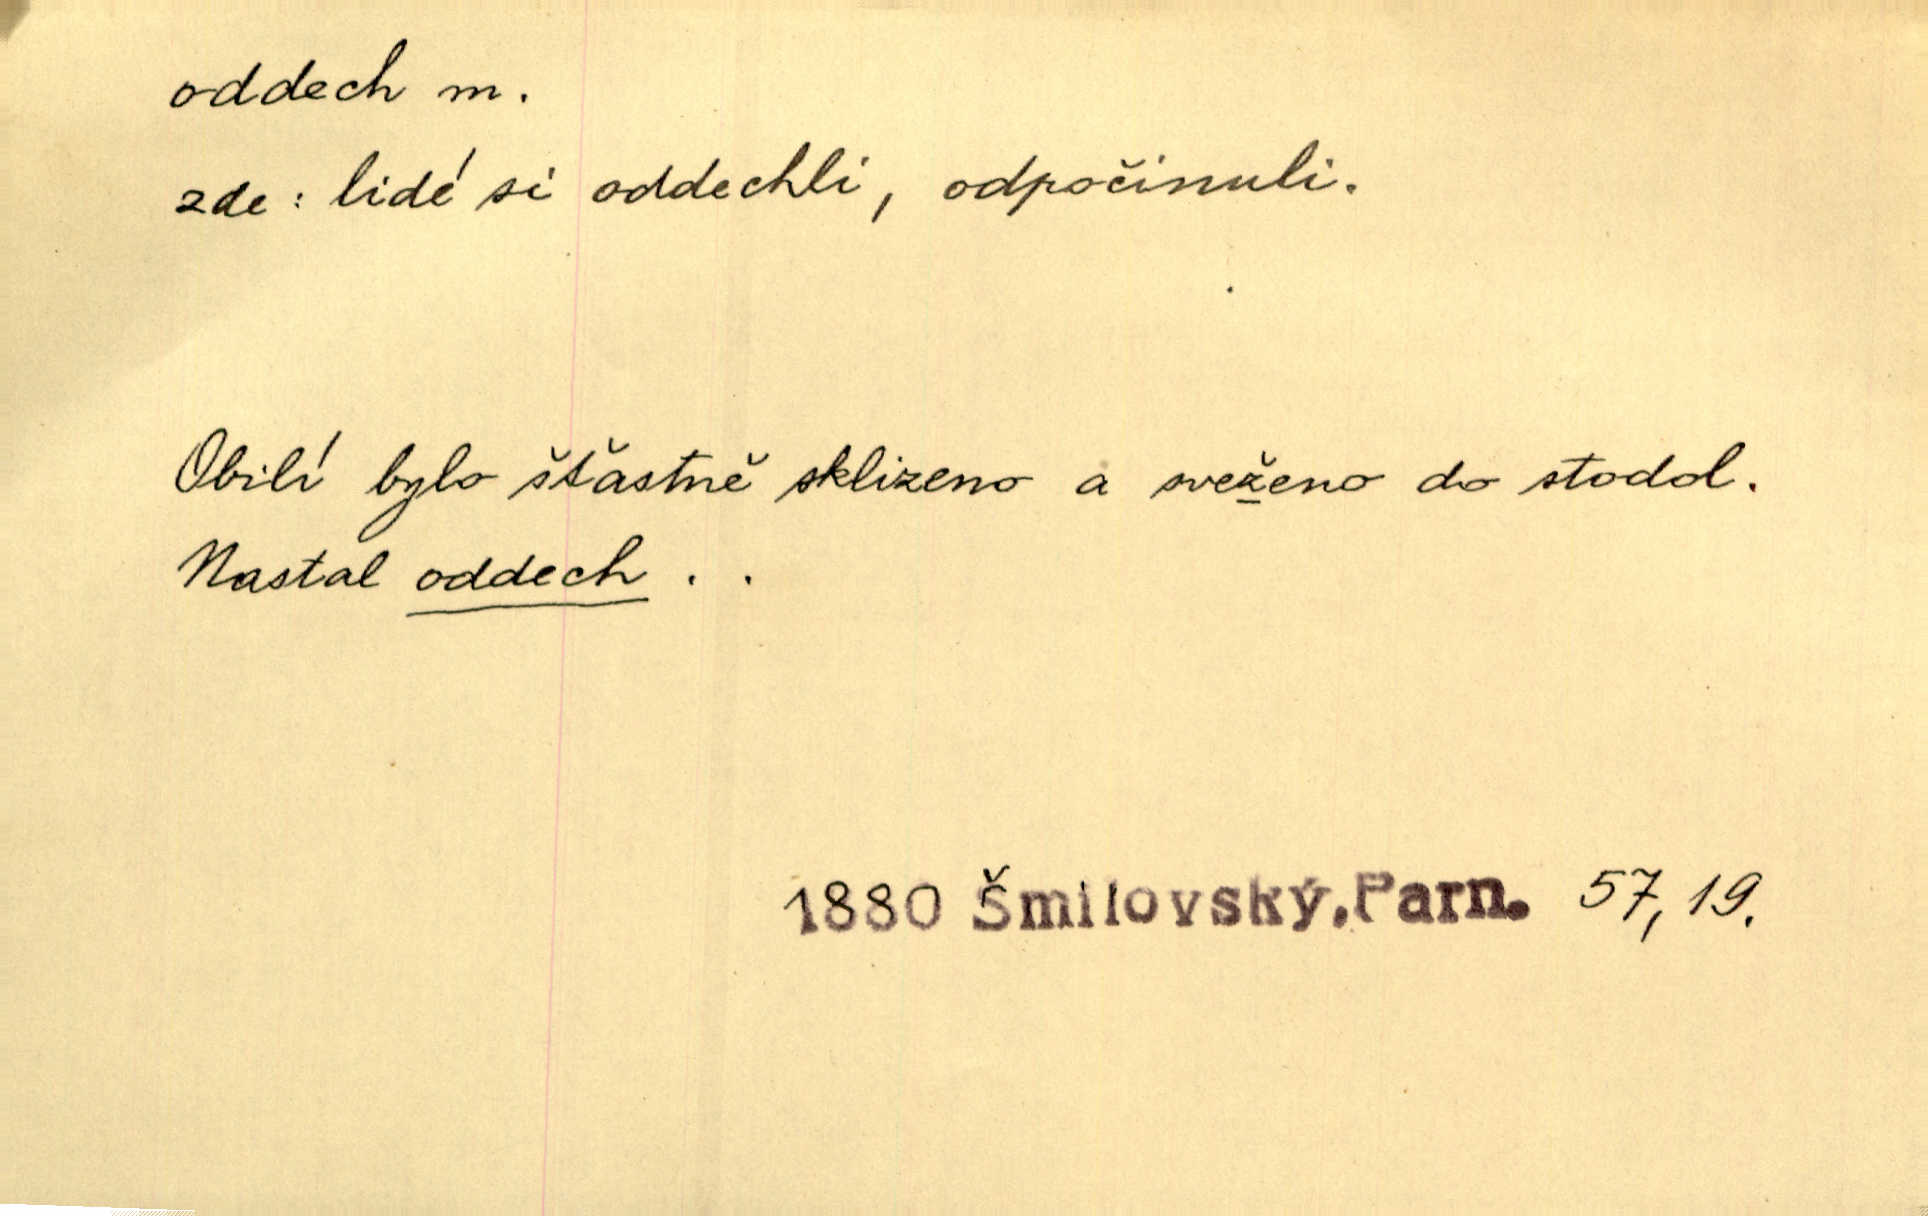 oddech m.
zde: lidé si oddechli, odpočinuli.
Obilí bylo šťastně sklizeno a sveženo do stodol.
Nastal oddech . .
1880 Šmilovský, Parn. 57, 19.